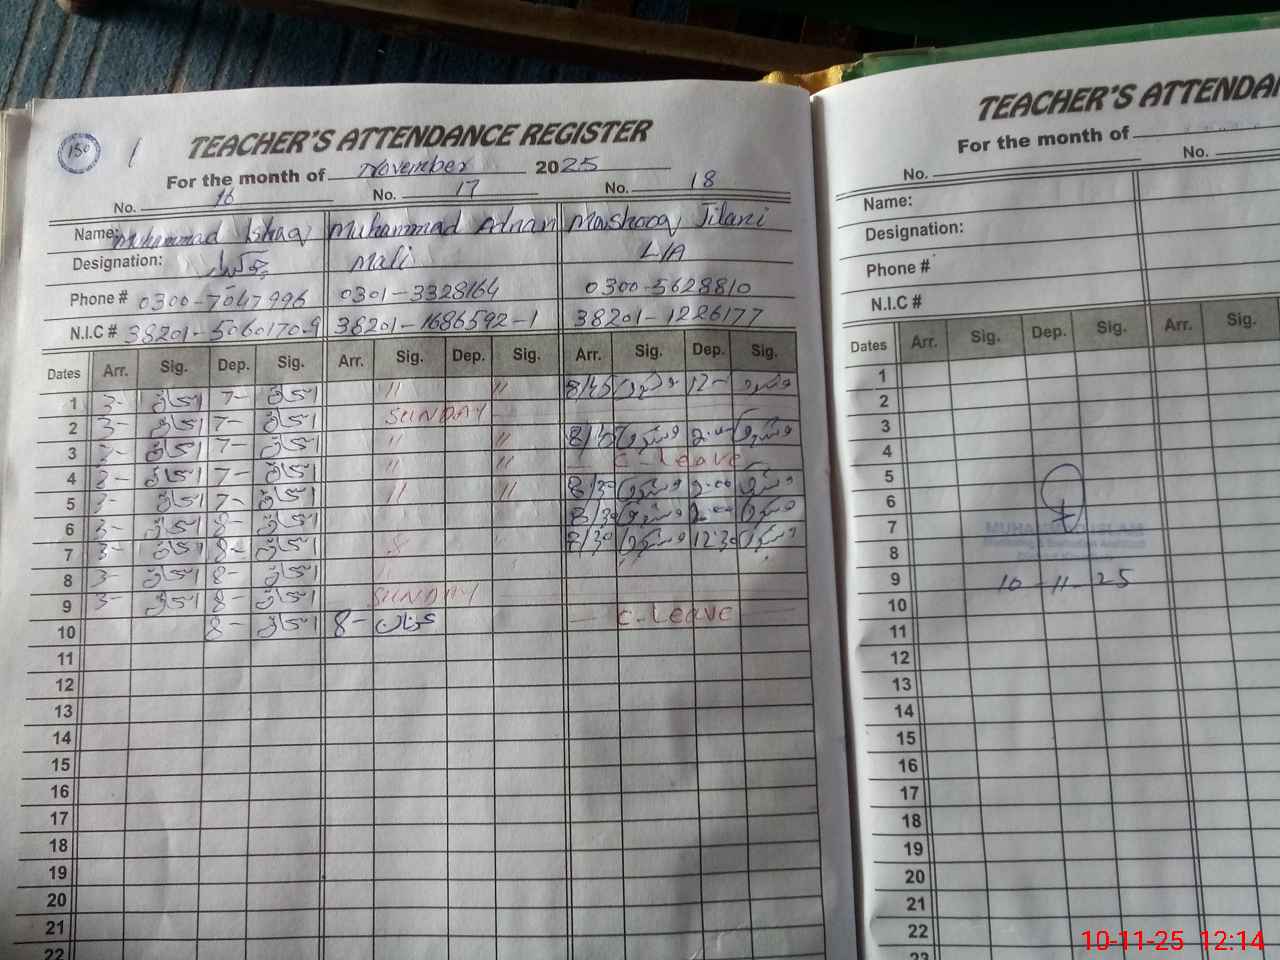 150
TEACHER'S ATTENDANCE REGISTER
For the month of November 2025
No. 16 No. 17 No. 18
Name: Muhammad Ishaq Muhammad Adnan Mashooq Jilani
Designation: چوکیدار Mali L/A
Phone # 0300-7047996 0301-3328164 0300-5628810
N.I.C # 38201-5060170-9 38201-1686592-1 38201-1226177
Dates Arr. Sig. Dep. Sig. Arr. Sig. Dep. Sig. Arr. Sig. Dep. Sig.
1 3- اسحاق 7- اسحاق " " 8/45 12-
2 3- اسحاق 7- اسحاق SUNDAY
3 3- اسحاق 7- اسحاق " " 2:00
4 3- اسحاق 7- اسحاق " " C-Leave
5 3- اسحاق 7- اسحاق " " 8/30 2:00
6 3- اسحاق 8- اسحاق 8/30 2:00
7 3- اسحاق 8- اسحاق 12:30
8 3- اسحاق 8- اسحاق
9 3- اسحاق 8- اسحاق SUNDAY
10 8- اسحاق 8- C-Leave
11
12
13
14
15
16
17
18
19
20
21
22
TEACHER'S ATTENDA
For the month of
No. No.
Name:
Designation:
Phone #
N.I.C #
Dates Arr. Sig. Dep. Sig. Arr. Sig.
1
2
3
4
5
6
7
8
9
10
11
12
13
14
15
16
17
18
19
20
21
22
23
10-11-25
10-11-25 12:14